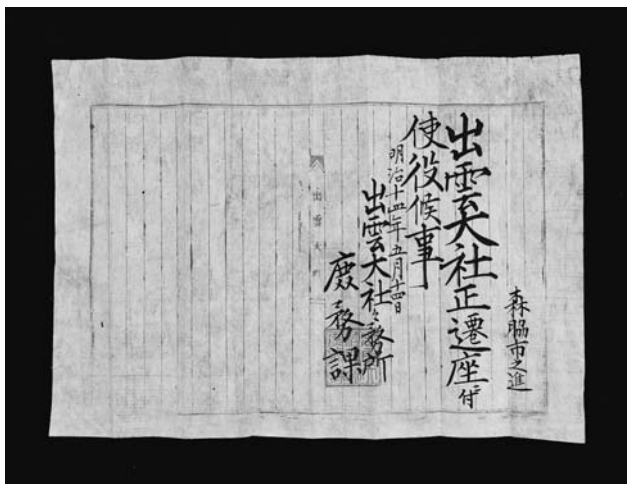 森脇市之進
出雲大社正遷座ニ付
使役候事
明治十四年五月十四日
出雲大社々務所
庶務課
出雲大社